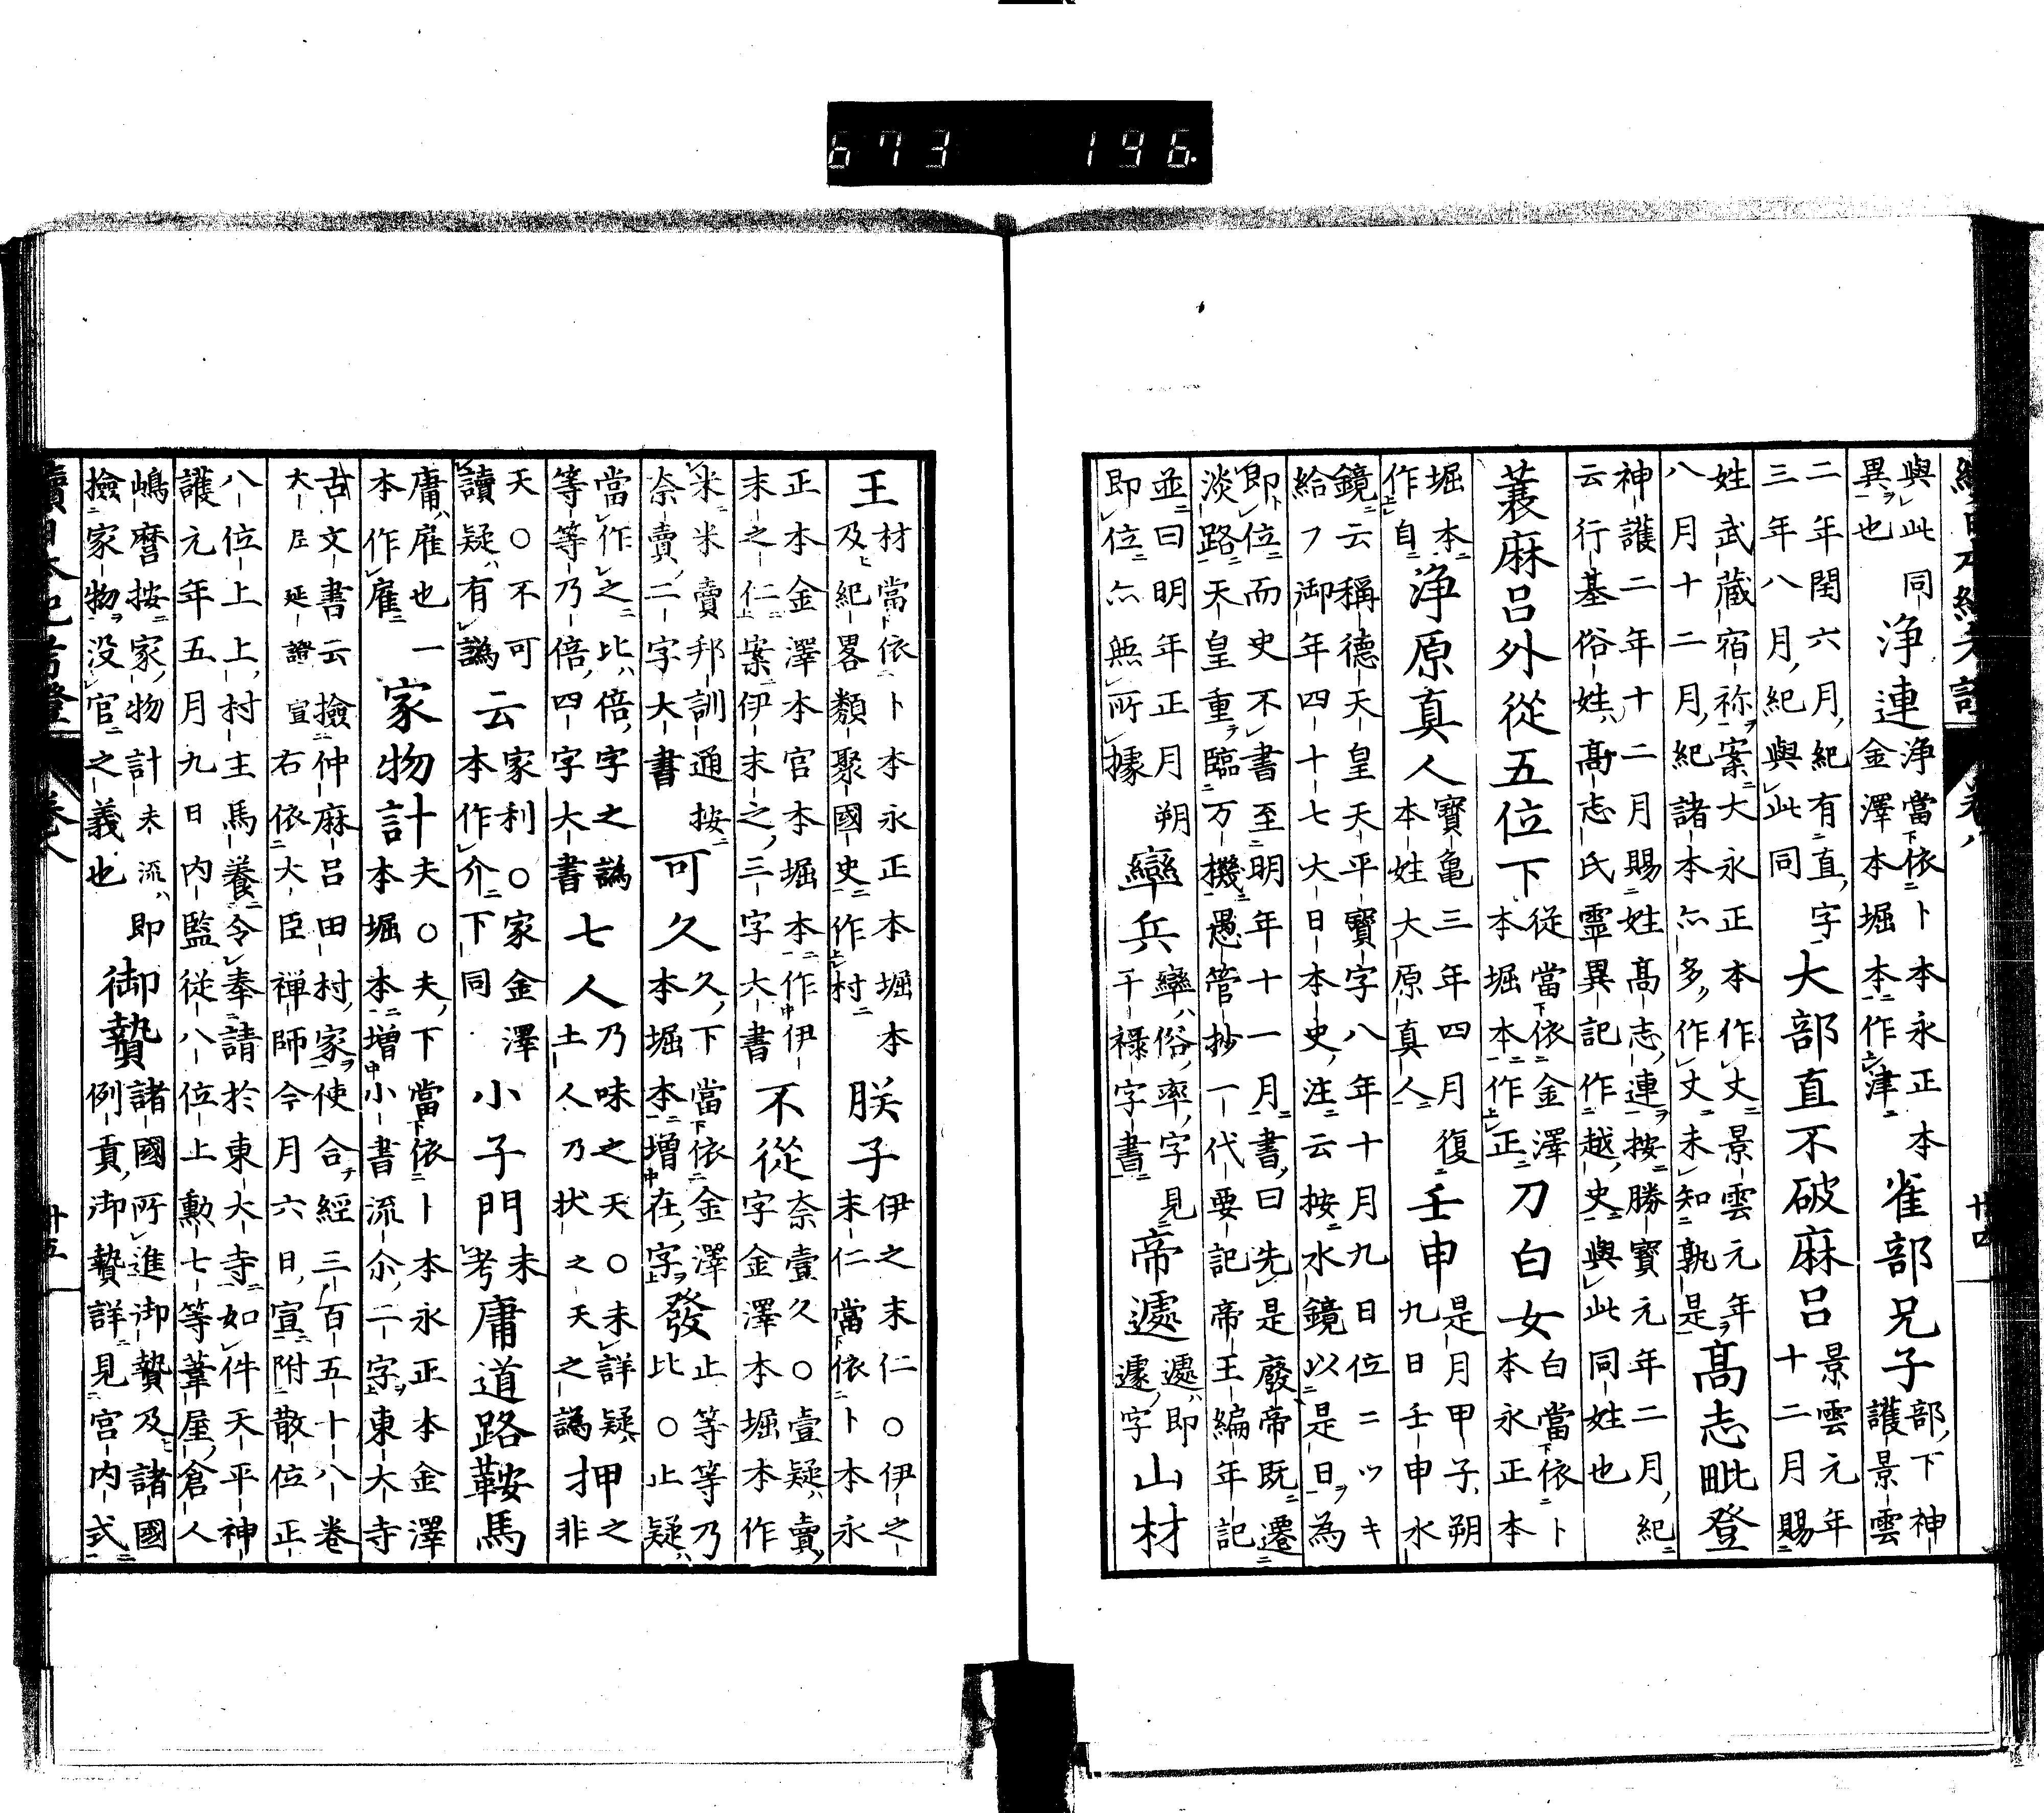 673 196.
續日本紀考證 卷八 廿四
與此同
異也
浄連
浄當依卜本永正本
金澤本堀本作津
雀部兄子
部下神
護景雲
二年閏六月紀有直字
三年八月紀與此同
大部直不破麻呂
景雲元年
十二月賜
姓武蔵宿祢案大永正本作丈景雲元年
八月十二月紀諸本亦多作丈未知孰是
高志毗登
神護二年十二月賜姓高志連按勝寶元年二月紀
云行基俗姓高志氏靈異記作越史與此同姓也
蓑麻呂外從五位下
從當依金澤
本堀本作正
刀白女
白當依卜
本永正本
堀本
作自
浄原真人
寶亀三年四月復
本姓大原真人
壬申
是月甲子朔
九日壬申水
鏡云稱德天皇天平寶字八年十月九日位ニツキ
給フ御年四十七大日本史注云按水鏡以是日為
即位而史不書至明年十一月書曰先是廢帝既遷
淡路天皇重臨万機愚管抄一代要記帝王編年記
並曰明年正月朔
即位亦無所據
欒兵
欒俗率字見
干祿字書
帝遽
遽即
遽字
山材
王
材當依卜本永正本堀本
及紀畧類聚國史作村
朕子
伊之末仁○伊之
末仁當依卜本永
正本金澤本官本堀本作伊
末之仁案伊末之三字大書
不從
奈壹久○壹疑賣
字金澤本堀本作
米米賣邦訓通按
奈賣二字大書
可久
久下當依金澤
本堀本增在字
發
止等等乃
比○止疑
當作之比倍字之譌
等等乃倍四字大書
七人
乃味之天○未詳疑
土人乃状之天之譌
押
之
非
天○不可
讀疑有譌
云
家利○家金澤
本作介下同
小子門
未
考
庸道路鞍馬
庸雇也一
本作雇
家物計
夫○夫下當依卜本永正本金澤
本堀本增小書流尒二字東大寺
古文書云撿仲麻呂田村家使合經三百五十八巻
大尼延證宣右依大臣禅師今月六日宣附散位正
八位上上村主馬養令奉請於東大寺如件天平神
護元年五月九日内監従八位上勳七等葦屋倉人
嶋麿按家物計未流即
撿家物没官之義也
御贄
諸國所進御贄及諸國
例貢御贄詳見宮内式
續日本紀考證 卷八 廿五